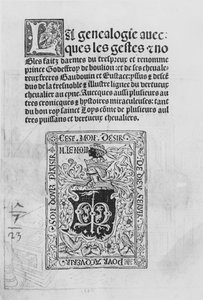 La genealogie auec-
ques les gestes & no
bles faitz darmes du trespreux et renomme
prince Godeffroy de boulion: et de ses cheuale-
reux freres Baudouin et Eustace: yssus & desce
dus de la tresnoble & illustre lignee du vertueux
cheualier au cyne. Auecques aussi plusieurs au
tres cronicques & hystoires miraculeuses: tant
du bon roy sainct Loys cõme de plusieurs aul
tres puissans et vertueux cheualiers.
CEST MON DESIR
DE DIEU SERVIR
POUR ACQUERIR
SON DOUX PLAISIR
M. LENOIR
23